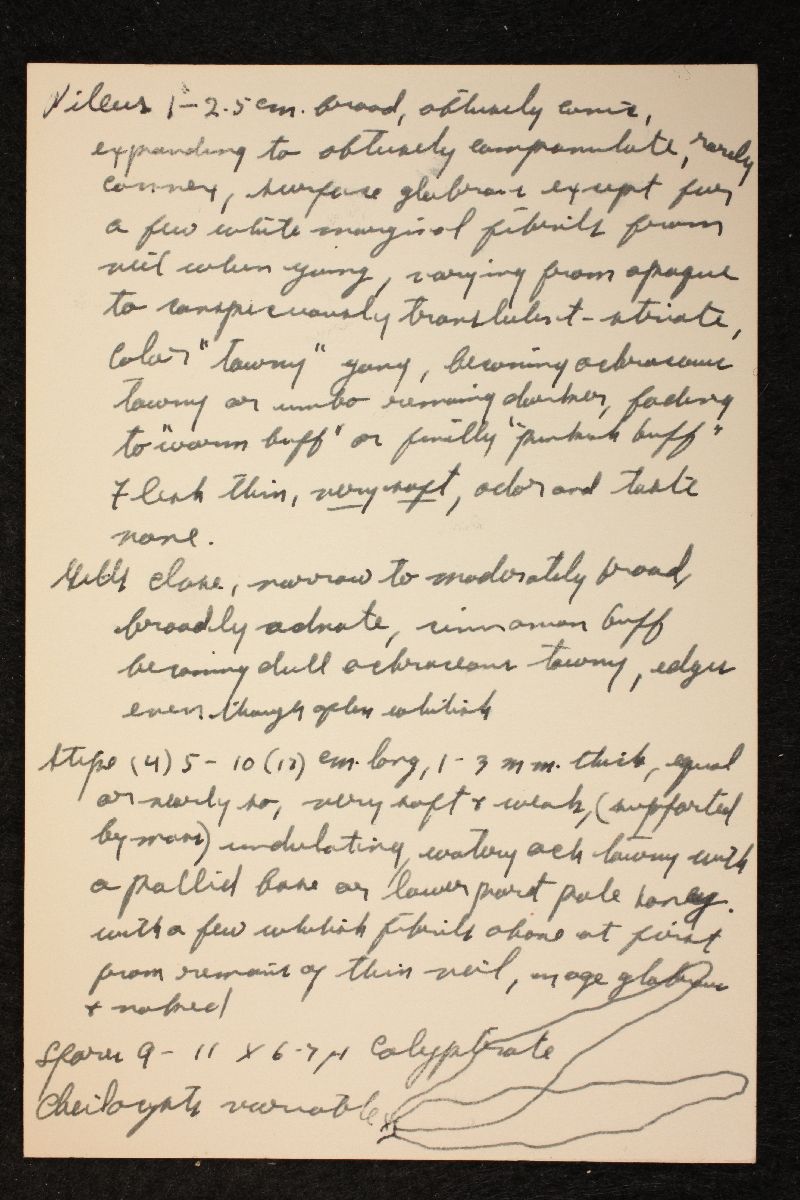 Pileus 1-2.5 cm. broad, obtusely conic,
expanding to obtusely campanulate, rarely
convex, surface glabrous except for
a few white marginal fibrils from
veil when young, varying from opaque
to conspicuously translulent-striate,
Color "tawny" young, becoming ochraceous
tawny or umbo remaing darker, fading
to "warm buff" or finally "pinkish buff"
Flesh thin, very soft, odor and taste
none.
Gills close, narrow to moderately broad,
broadly adnate, cinnamon buff
becoming dull ochraceous tawny, edges
even though often whitish
Stipe (4) 5-10 (12) cm. long, 1-3 mm. thick, equal
or nearly so, very soft & weak, (supported
by moss) undulating, watery och tawny with
a pallid base or lower part pale honey.
with a few whitish fibrils above at first
from remains of thin veil, in age glabrous
& naked
Spores 9-11 X 6-7 μ calyptrate
Cheilocysts variable